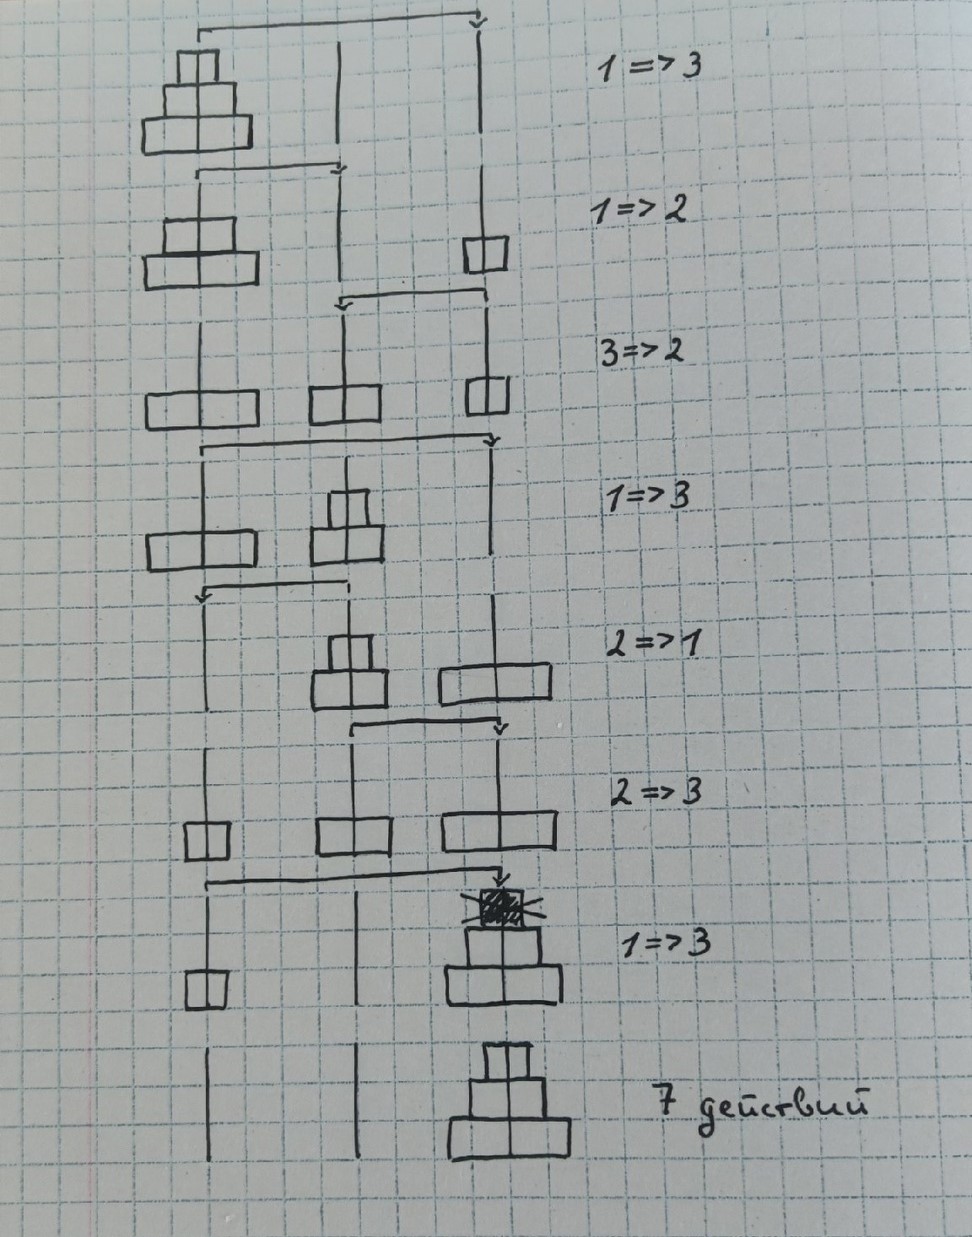 1 => 3
1 => 2
3 => 2
1 => 3
2 => 1
2 => 3
1 => 3
7 действий